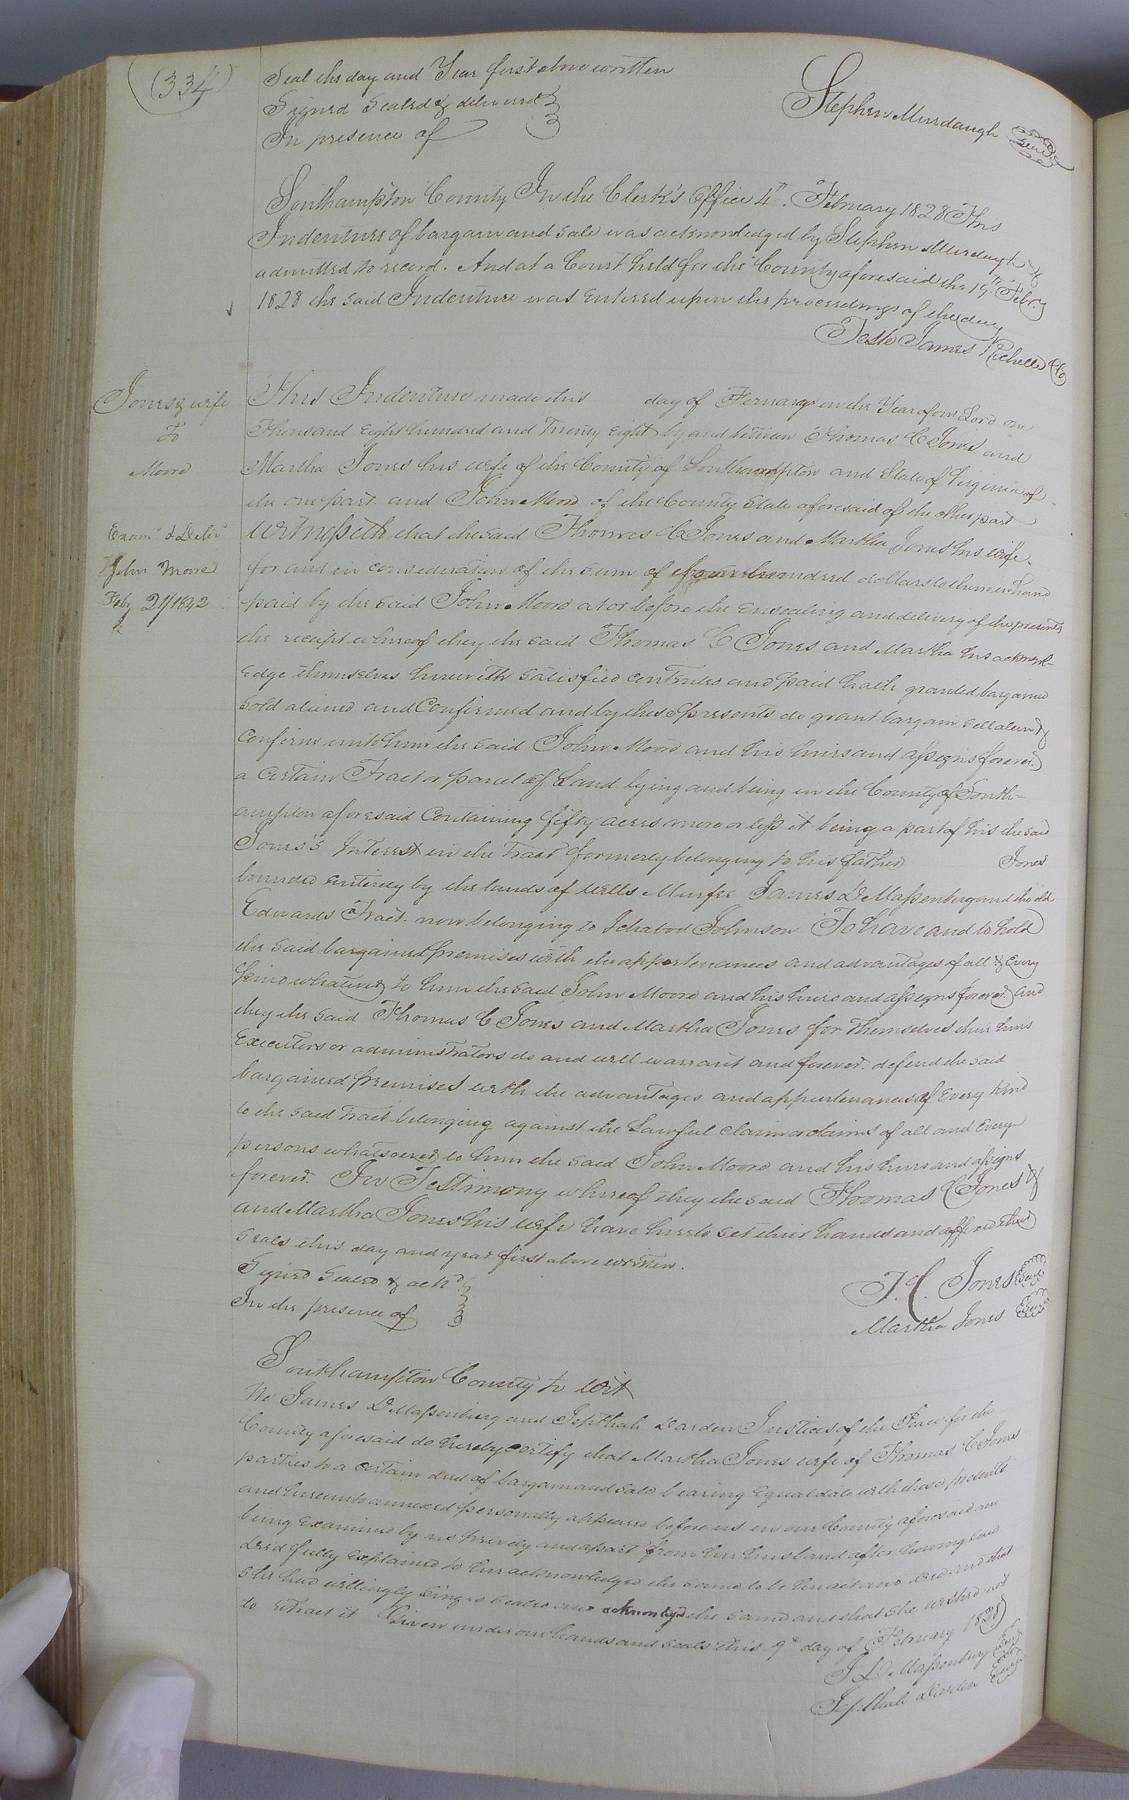 (334)
Seal the day and Year first above written
Signed Sealed & delivered
In presence of
Stephen Murdaugh Seal
Southampton County In the Clerk's Office 4th. February 1828 This
Indenture of bargain and sale was acknowledged by Stephen Murdaugh &
admitted to record. And at a Court held for the County aforesaid the 19th Feby
1828 the said Indenture was entered upon the proceedings of the day
Teste James Rochelle Cl
Jones & wife
To
Moore
Exam & Deliv
John Moore
Feby 21/1842
This Indenture made this day of Fernary in the Year of our Lord one
Thousand eight hundred and Twenty Eight by and between Thomas C Jones and
Martha Jones his wife of the County of Southampton and State of Virginia of
the one part and John Moore of the County State aforesaid of the other part
Witnesseth that the said Thomas C Jones and Martha Jones his wife
for and in consideration of the sum of four hundred dollars to them in hand
paid by the said John Moore at or before the ensealing and delivery of the presents
the receipt whereof they the said Thomas C Jones and Martha his acknowl-
edge themselves herewith satisfied contented and paid hath granted bargained
sold aliened and Confirmed and by these presents do grant bargain sell alien &
Confirm unto him the said John Moore and his heirs and assigns forever
a Certain Tract or parcel of Land lying and being in the County of South-
ampton aforesaid Containing fifty acres more or less it being a part of his the said
Jones's Interest in the Tract formerly belonging to his father Jones
bounded entirely by the lands of Wells Murfee James D Massenburg and the old
Edwards Tract now belonging to Ichabod Johnson To have and to hold
the said bargained premises with the appertenances and advantages of all & every
kind whatever to him the said John Moore and his heirs and assigns forever and
they the said Thomas C Jones and Martha Jones for themselves their heirs
Executors or administrators do and will warrant and forever defend the said
bargained premises with the advantages and appurtenances of Every kind
to the said Tract belonging against the Lawful claim or claims of all and Every
persons whatsoever to him the said John Moore and his heirs and assigns
forever. In Testimony whereof they the said Thomas C Jones &
and Martha Jones his wife have hereto set their hands and affixed their
seals this day and year first above written.
Signed Sealed & ackd
In the presence of
T. C. Jones Seal
Martha Jones Seal
Southampton County to Wit
We James D Massenburg and Jepthah Darden Justices of the Peace for the
County aforesaid do hereby certify that Martha Jones wife of Thomas C Jones
parties to a certain deed of bargain and sale bearing equal date with these presents
and hereunto annexed personally appeared before us in our County aforesaid and
being examined by us privily and apart from her husband after having said
Deed fully explained to her acknowledged the same to be her act and deed and that
she had willingly signed sealed and acknowlgd the same and that she wished not
to retract it Given under our hands and seals this 9th day of February 1828
J. D. Massenburg Seal
Jepthah Darden Seal